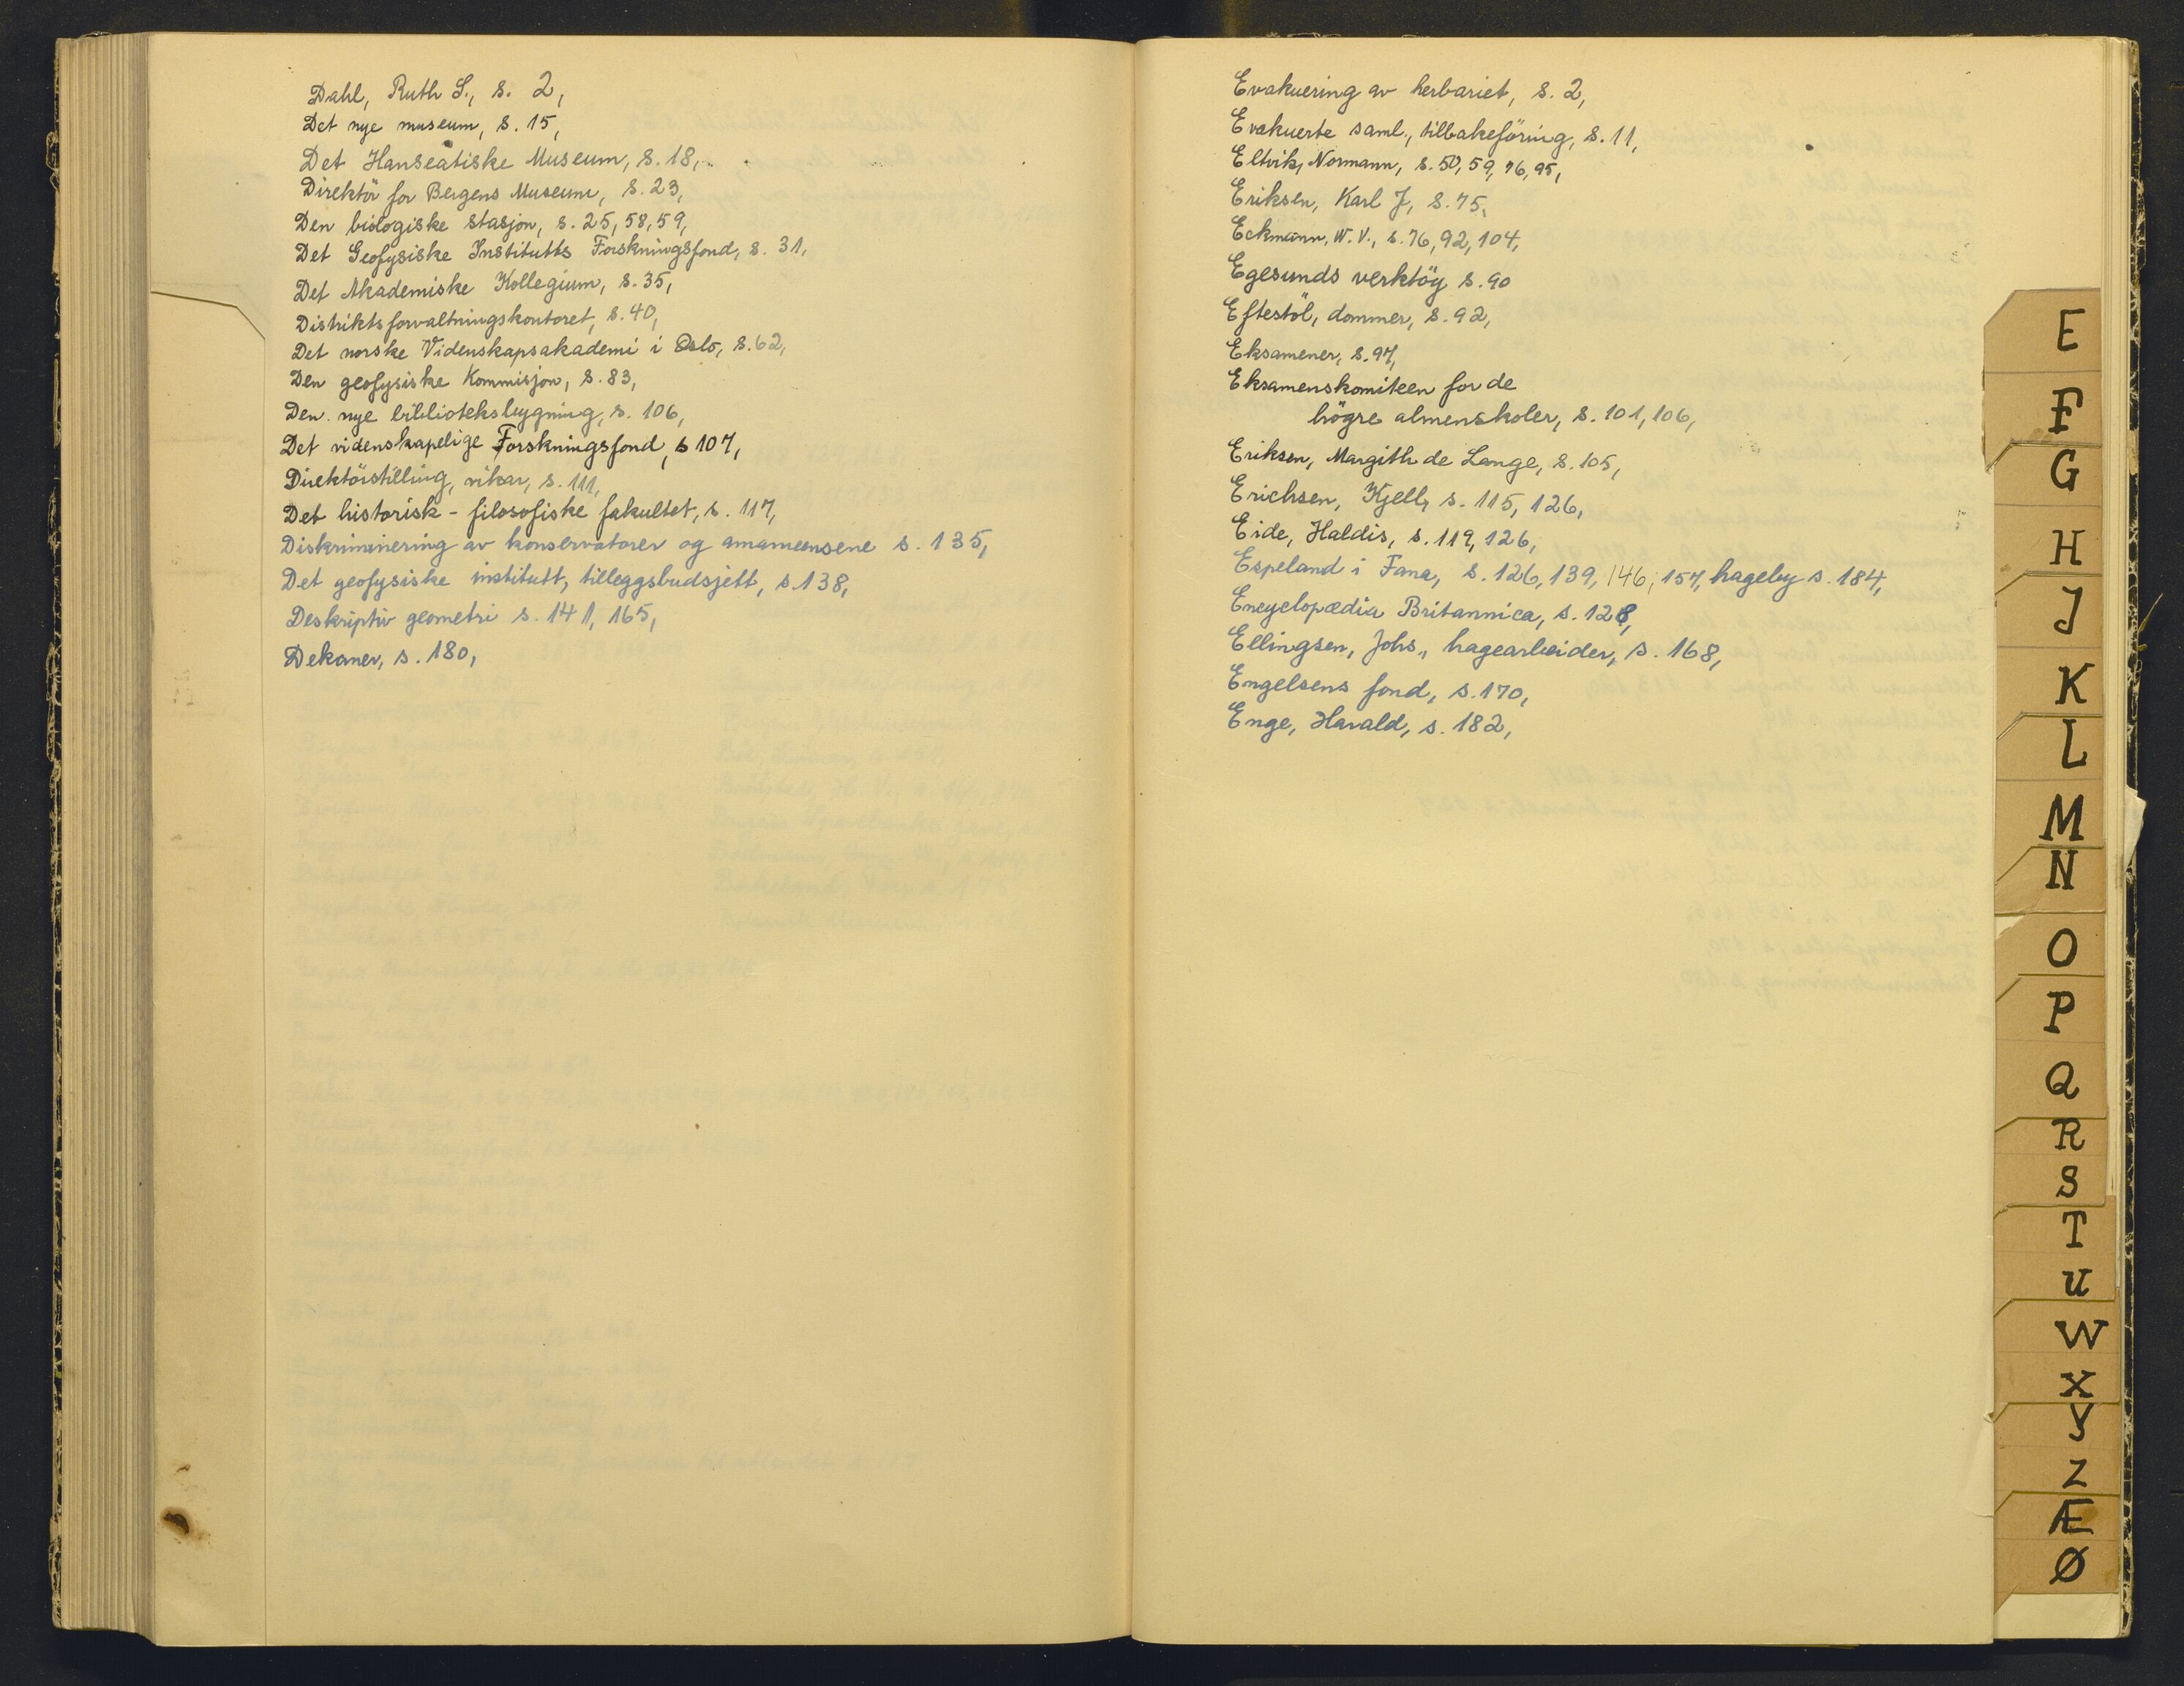 Dahl, Ruth S., s. 2,
Det nye museum, s. 15,
Det Hanseatiske Museum, s. 18,
Direktör for Bergens Museum, s. 23,
Den biologiske stasjon, s. 25, 58, 59,
Det Geofysiske Institutts Forskningsfond, s. 31,
Det Akademiske Kollegium, s. 35,
Distriktsforvaltningskontoret, s. 40,
Det norske Videnskapsakademi i Oslo, s. 62,
Den geofysiske Kommisjon, s. 83,
Den nye biblioteksbygning, s. 106,
Det videnskapelige Forskningsfond, s 107,
Direktörstilling, vikar, s. 111,
Det historisk - filosofiske fakultet, s. 117,
Diskriminering av konservatorer og amanuensene s. 135,
Det geofysiske institutt, tilleggsbudsjett, s. 138,
Deskriptiv geometri s. 141, 165,
Dekaner, s. 180,
Evakuering av herbariet, s. 2,
Evakuerte saml., tilbakeföring, s. 11,
Eltvik, Normann, s. 50, 59, 76, 95,
Eriksen, Karl J, s. 75,
Eckmann, W. V., s. 76, 92, 104,
Egesunds verktöy s. 90
Eftestöl, dommer, s. 92,
Eksamener, s. 97,
Eksamenskomiteen for de
högre almenskoler, s. 101, 106,
Eriksen, Margith de Lange, s. 105,
Erichsen, Kjell, s. 115, 126,
Eide, Haldis, s. 119, 126,
Espeland i Fana, s. 126, 139, 146, 157, hageby s. 184,
Encyclopædia Britannica, s. 128,
Ellingsen, Johs., hagearbeider, s. 168,
Engelsens fond, s. 170,
Enge, Harald, s. 182,
E
F
G
H
J
K
L
M
N
O
P
Q
R
S
T
U
W
X
Y
Z
Æ
Ø